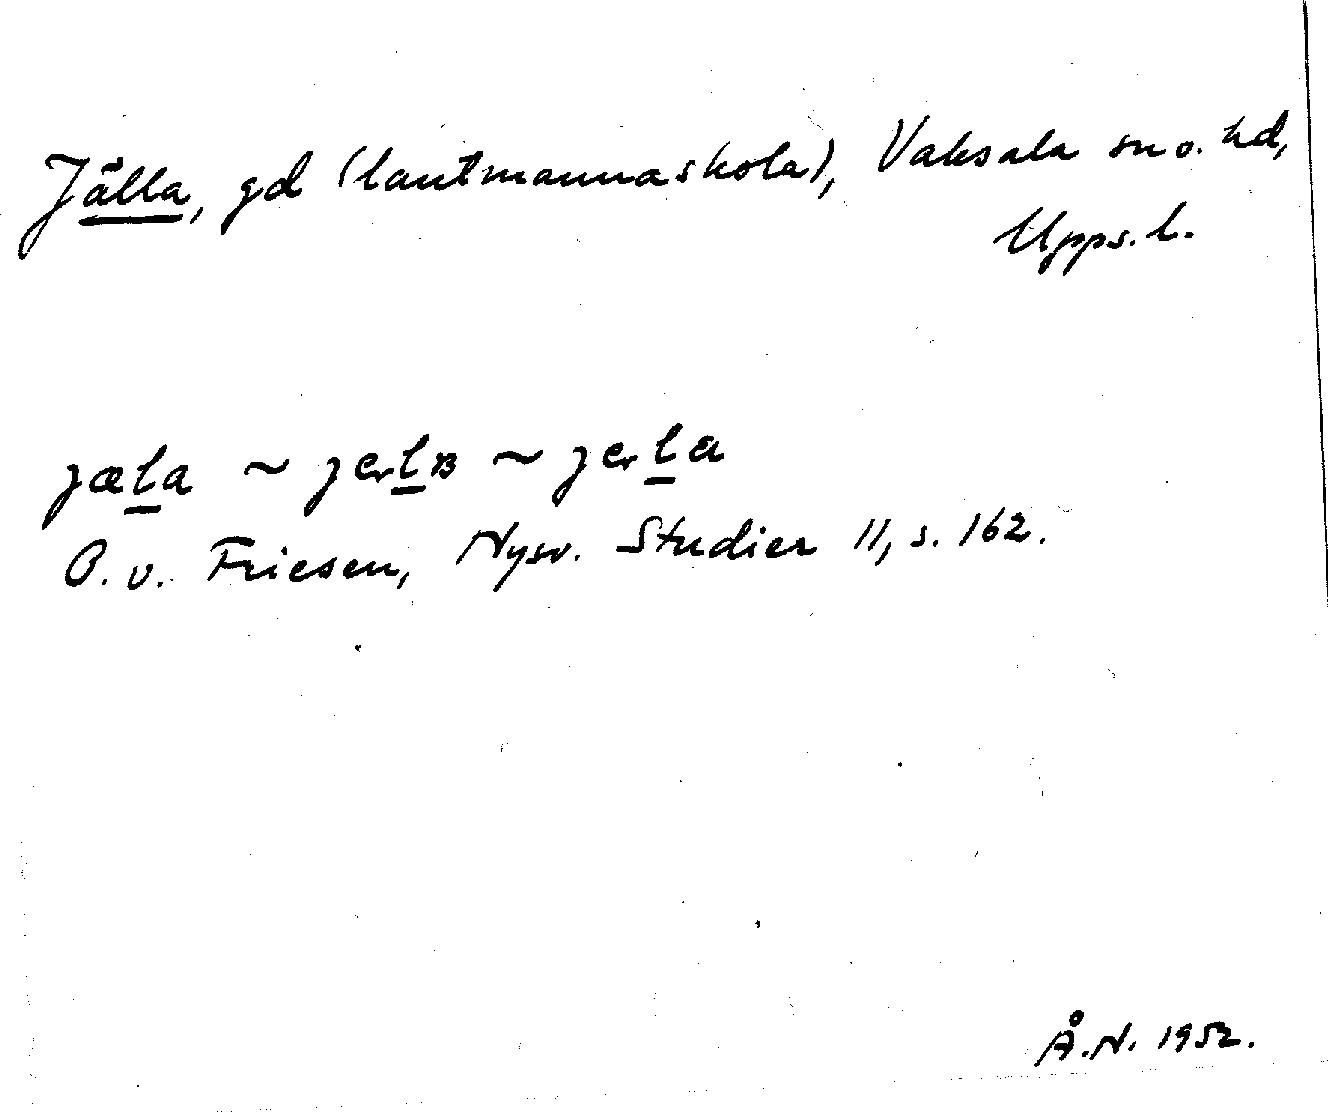 Jälla, gd (lantmannaskola), Vaksala sn o. hd,
Upps. l.
jæla ~ jerlʙ ~ jerla
O. v. Friesen, Nysv. Studier 11, s. 162.
Å.N. 1952.